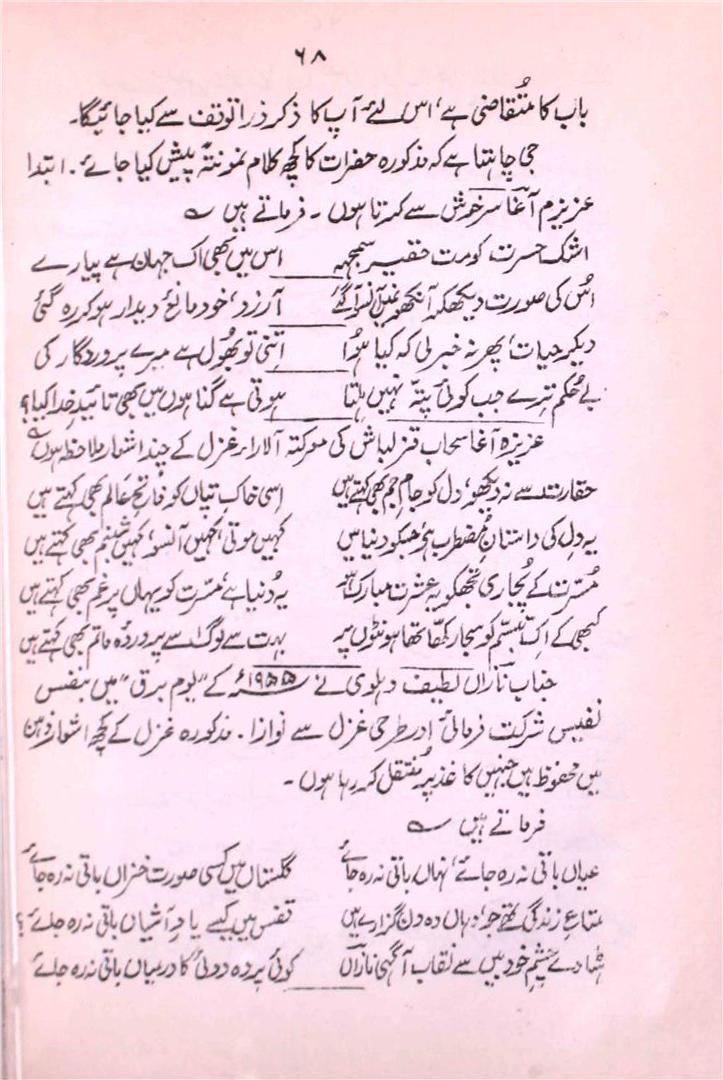 ۶۸
باب کا متُقاضی ہے، اس لئے آپ کا ذکر ذرا توقف سے کیا جائیگا۔
جی چاہتا ہے کہ مذکورہ حضرات کا کچھ کلام نمونتہً پیش کیا جائے۔ ابتدا
عزیزم آغا سرخوش سے کرتا ہوں۔ فرماتے ہیں ؎
اشک حسرت کو مت حقیر سمجھ اس میں بھی اک جہان ہے پیارے
اُس کی صورت دیکھکر آنکھو نمیں آنسو آگئے آرزو، خود مانعِ دیدار ہو کر رہ گئی
دیکر حیات، پھر نہ خبر لی کہ کیا ہُوا اتنی تو بھُول ہے میرے پروردگار کی
بے حُکم تیرے جب کوئی پتہّ نہیں ہلتا ہوتی ہے گناہوں میں بھی تائیدِ خدا کیا؟
عزیزہ آغا سحاب قزلباش کی معرکتہ آلارا غزل کے چند اشعار ملاحظہ ہوں ؎
حقارت سے نہ دیکھو، دل کو جامِ جم بھی کہتے ہیں اسی خاکِ تپاں کو فاتحِ عالم بھی کہتے ہیں
یہ دل کی داستانِ مضطرب ہے جسکو دنیا میں کہیں موتی، کہیں آنسو، کہیں شبنم بھی کہتے ہیں
مُسرّت کے پُجاری تجھکو یہ عشرت مبارک ہو یہ دُنیا ہے، مسّرت کو یہاں پر غم بھی کہتے ہیں
کبھی کے اک تبسّم کو سجا رکھّا تھا ہونٹوں پر بہت سے لوگ اسے پروردہ ماتم بھی کہتے ہیں
جناب نازاں لطیف دہلوی نے ۱۹۵۵ء کے "یوم برق" میں بنفس
نفیس شرکت فرمائی اور طرحی غزل سے نوازا۔ مذکورہ غزل کے کچھ اشعار ذہن
میں محفوظ ہیں جنہیں کاغذ پر مُنتقل کر رہا ہوں۔
فرماتے ہیں ؎
عیاں باقی نہ رہ جائے، نہاں باقی نہ رہ جائے گلستاں میں کسی صورت خزاں باقی نہ رہ جائے
متاعِ زندگی تھے جو، وہاں وہ دن گزارے ہیں قفس میں کیسے یادِ آشیاں باقی نہ رہ جائے؟
ہٹا دے چشمِ خود بیں سے نقاب آگہی نازاں کوئی پردہ دوئی کا درمیاں باقی نہ رہ جائے